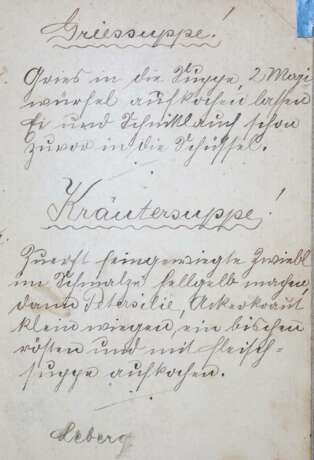 Griessuppe!
Gries in die Suppe 2 Magi
würfel aufkochen lassen
Ei und Schniklauch schon
zuvor in die Schüssel.
Kräutersuppe!
Zuerst feingewiegte Zwiebl
im Schmalze hellgelb machen,
dann Petersilie, Ackerkraut
klein wiegen, ein bischen
rösten und mit Fleisch-
suppe aufkochen.